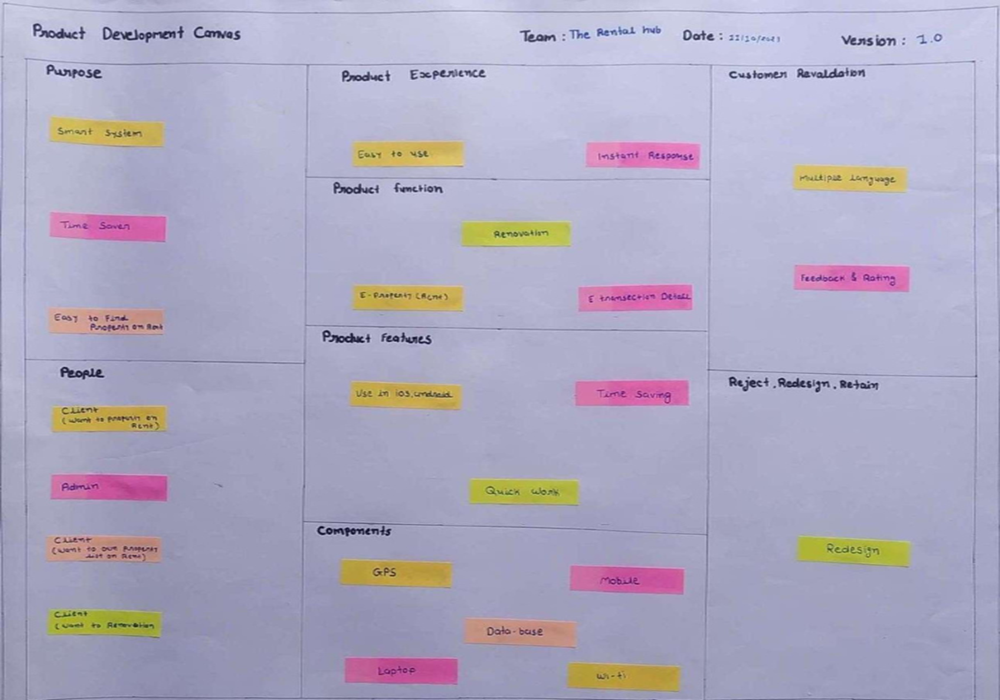 Product Development Canvas
Team : The Rental hub
Date :
Version : 1.0
Purpose
Smart System
Time Saver
Easy to Find
Property on Rent
People
Client
(want to property on
Rent)
Admin
Client
(want to own property
list on Rent)
Client
(want to Renovation
Product Experience
Easy to use
Instant Response
Product function
Renovation
E-Property (Rent)
E transection Detail
Product Features
Use in ios, android
Time Saving
Quick Work
Components
GPS
Mobile
Data-base
Laptop
Wi-fi
Customer Revaldation
Multiple Language
Feedback & Rating
Reject, Redesign, Retain
Redesign